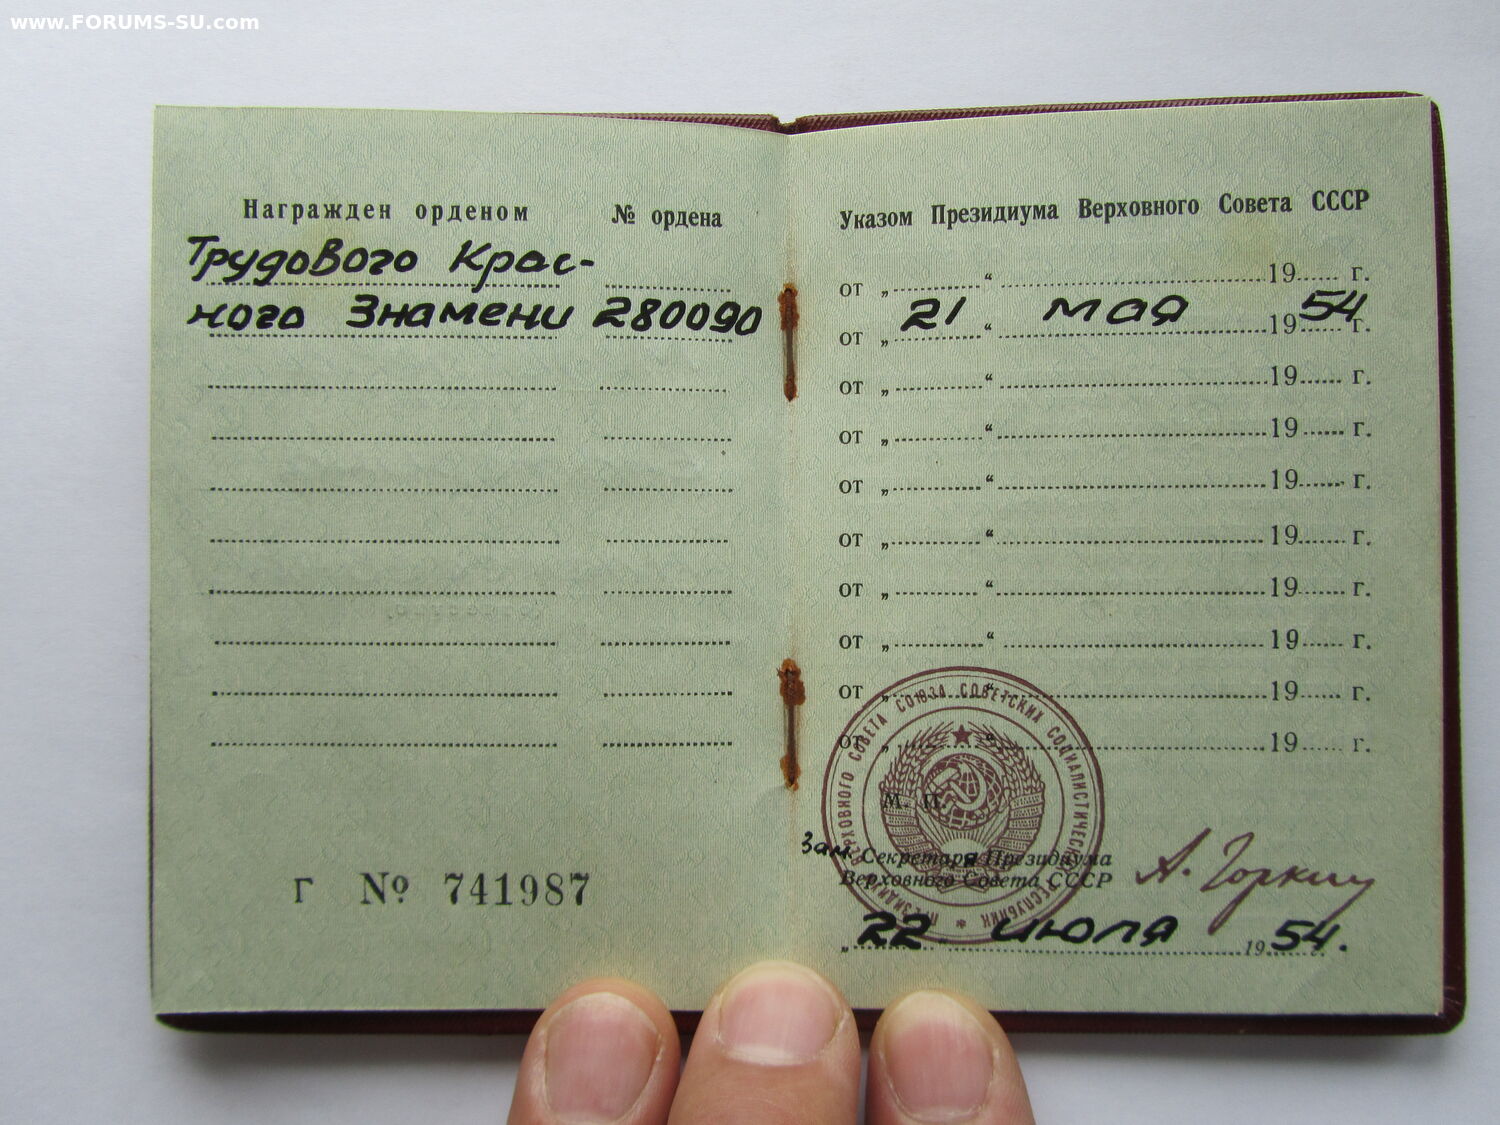 www.FORUMS-SU.com
Награжден орденом № ордена
Трудового Крас-
ного Знамени 280090
Г № 741987
Указом Президиума Верховного Совета СССР
от „ “ 19 г.
от „ 21 “ мая 1954 г.
от „ “ 19 г.
от „ “ 19 г.
от „ “ 19 г.
от „ “ 19 г.
от „ “ 19 г.
от „ “ 19 г.
от „ “ 19 г.
от „ “ 19 г.
М. П.
Зам. Секретаря Президиума
Верховного Совета СССР
А. Горкин
„ 22 “ июля 1954.
ПРЕЗИДИУМ ВЕРХОВНОГО СОВЕТА СОЮЗА СОВЕТСКИХ СОЦИАЛИСТИЧЕСКИХ РЕСПУБЛИК